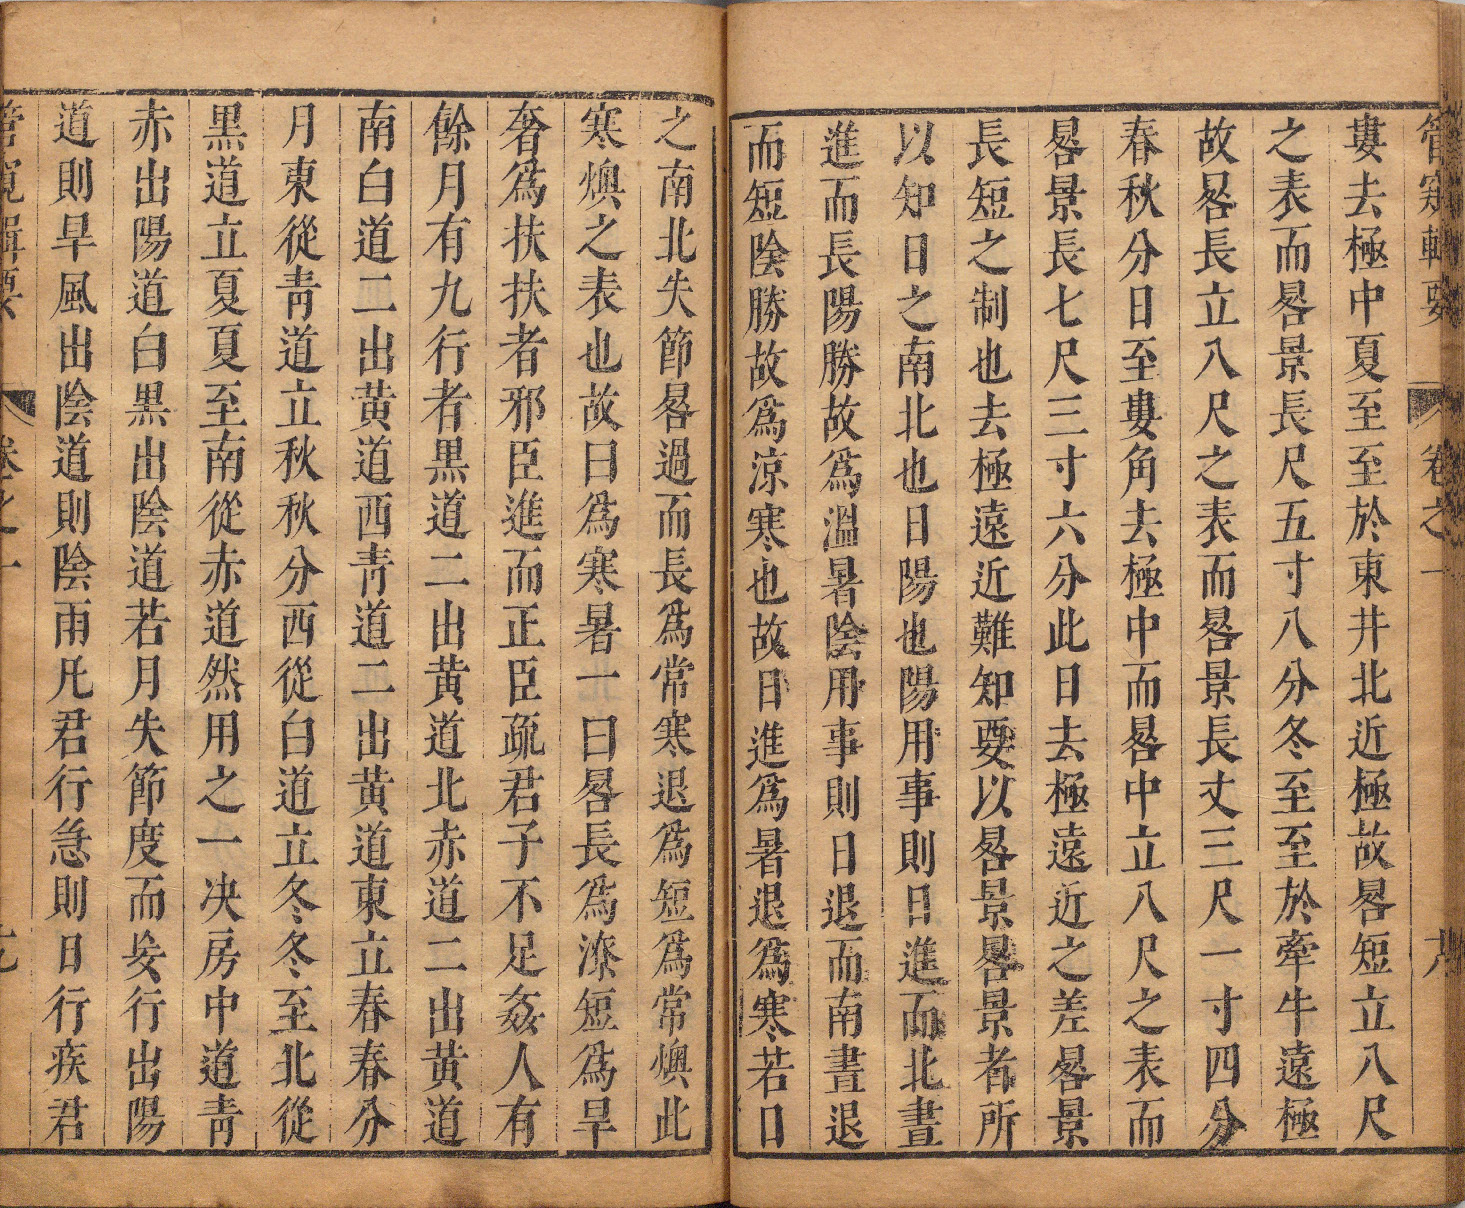 管窺輯要 卷之一 六
婁去極中夏至至於東井北近極故晷短立八尺
之表而晷景長尺五寸八分冬至至於牽牛遠極
故晷長立八尺之表而晷景長丈三尺一寸四分
春秋分日至婁角去極中而晷中立八尺之表而
晷景長七尺三寸六分此日去極遠近之差晷景
長短之制也去極遠近難知要以晷景晷景者所
以知日之南北也日陽也陽用事則日進而北晝
進而長陽勝故為溫暑陰用事則日退而南晝退
而短陰勝故為涼寒也故日進為暑退為寒若日
之南北失節晷過而長為常寒退為短為常燠此
寒燠之表也故曰為寒暑一曰晷長為潦短為旱
奢為扶扶者邪臣進而正臣疏君子不足姦人有
餘月有九行者黑道二出黃道北赤道二出黃道
南白道二出黃道西青道二出黃道東立春春分
月東從青道立秋秋分西從白道立冬冬至北從
黑道立夏夏至南從赤道然用之一决房中道青
赤出陽道白黑出陰道若月失節度而妄行出陽
道則旱風出陰道則陰雨凡君行急則日行疾君
管窺輯要 卷之一